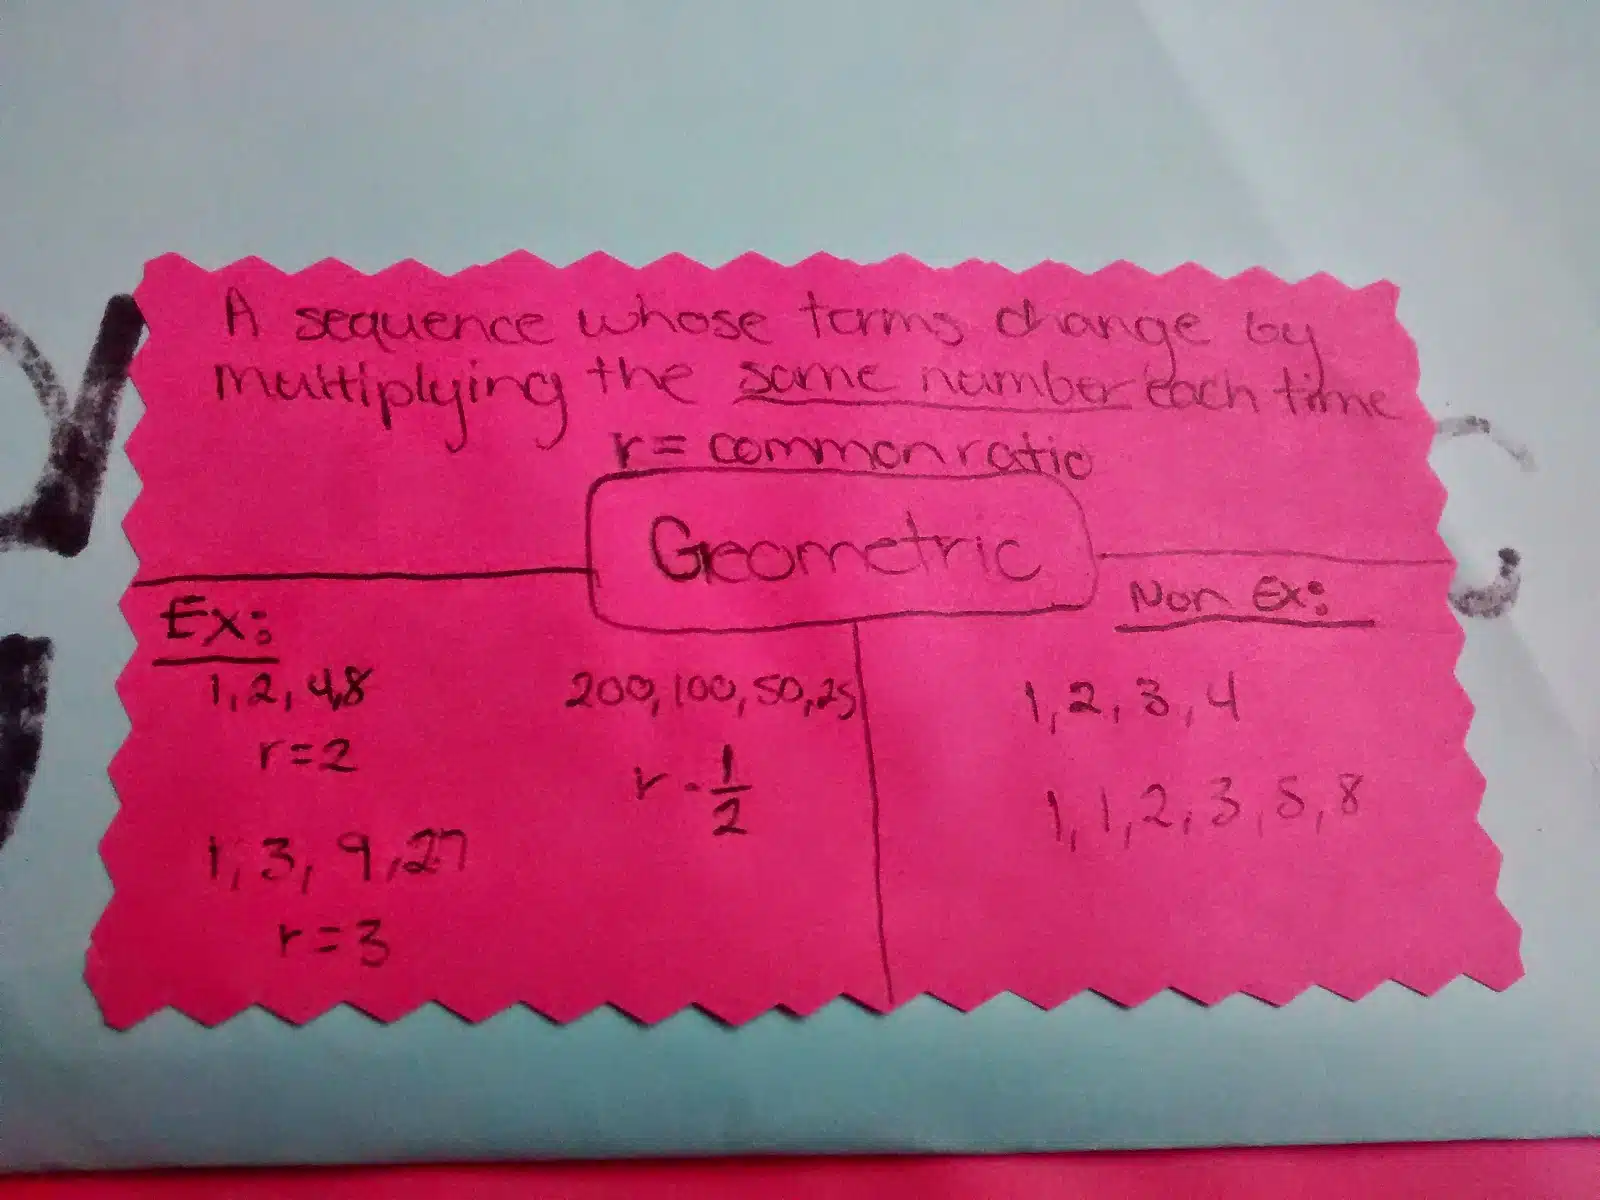 A sequence whose terms change by
multiplying the same number each time
r = common ratio
Geometric
Ex:
1, 2, 4, 8
r = 2
1, 3, 9, 27
r = 3
200, 100, 50, 25
r - 1/2
Non Ex:
1, 2, 3, 4
1, 1, 2, 3, 5, 8